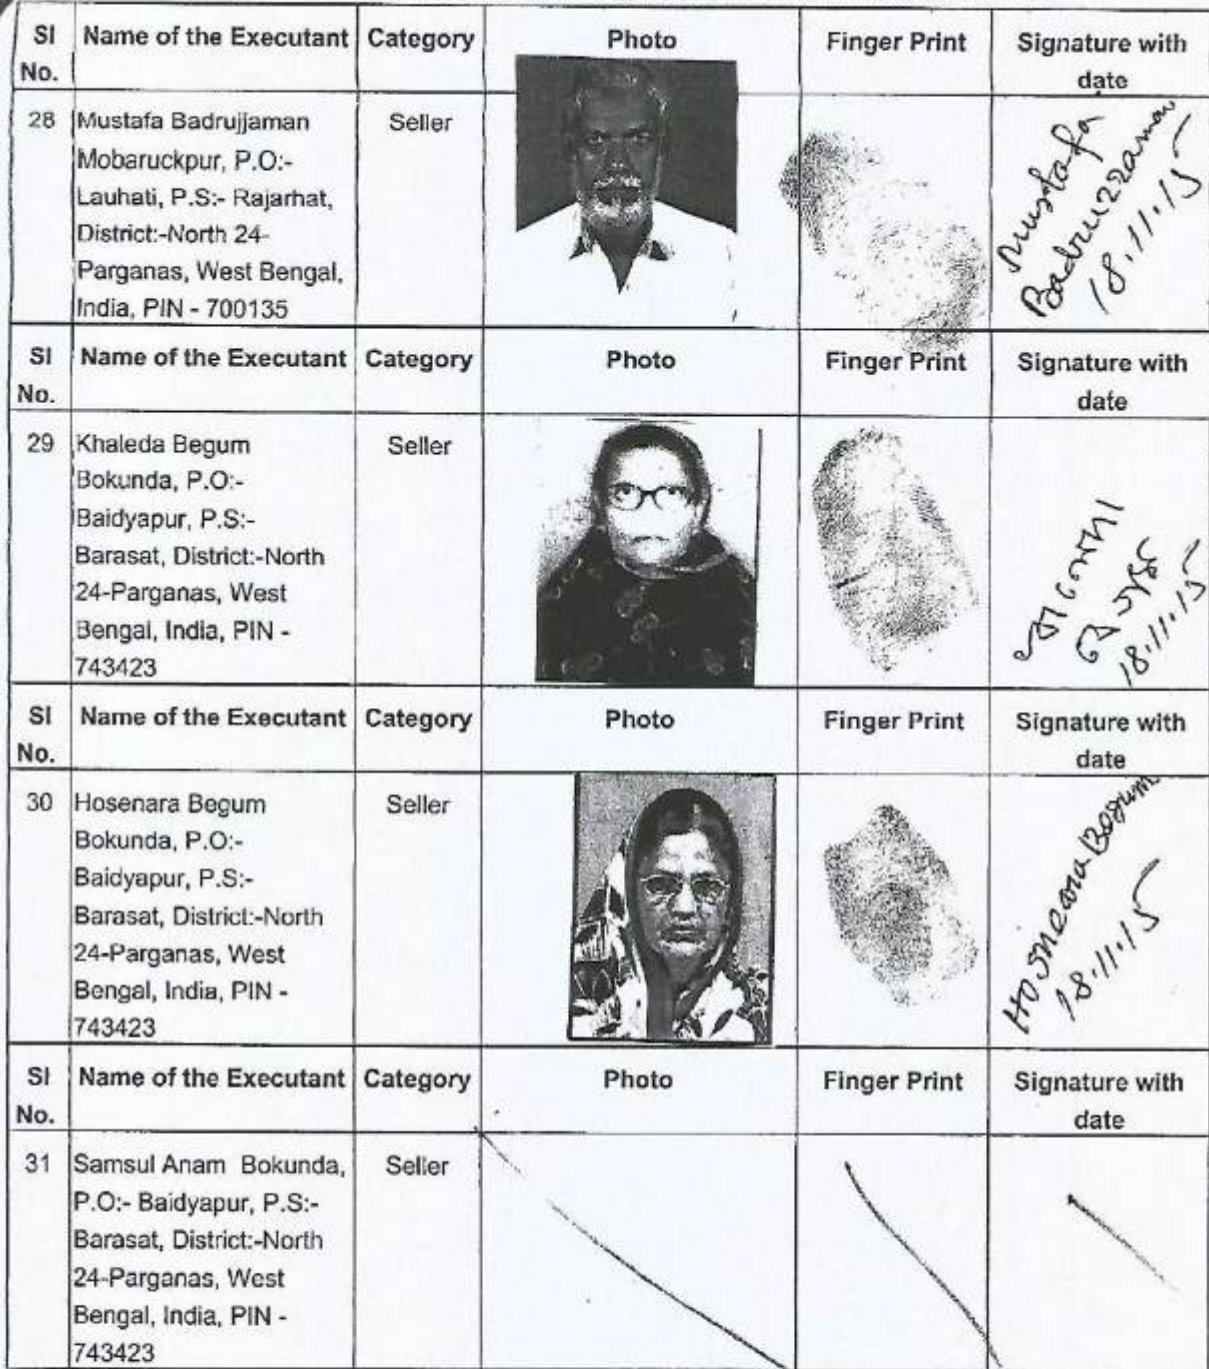 Sl No. Name of the Executant Category Photo Finger Print Signature with date
28 Mustafa Badrujjaman Seller
Mobaruckpur, P.O:-
Lauhati, P.S:- Rajarhat,
District:-North 24-
Parganas, West Bengal,
India, PIN - 700135
Mustafa
Badruzzaman
18.11.15
Sl No. Name of the Executant Category Photo Finger Print Signature with date
29 Khaleda Begum Seller
Bokunda, P.O:-
Baidyapur, P.S:-
Barasat, District:-North
24-Parganas, West
Bengal, India, PIN -
743423
18.11.15
Sl No. Name of the Executant Category Photo Finger Print Signature with date
30 Hosenara Begum Seller
Bokunda, P.O:-
Baidyapur, P.S:-
Barasat, District:-North
24-Parganas, West
Bengal, India, PIN -
743423
Hosneara Begum
18.11.15
Sl No. Name of the Executant Category Photo Finger Print Signature with date
31 Samsul Anam Bokunda, Seller
P.O:- Baidyapur, P.S:-
Barasat, District:-North
24-Parganas, West
Bengal, India, PIN -
743423